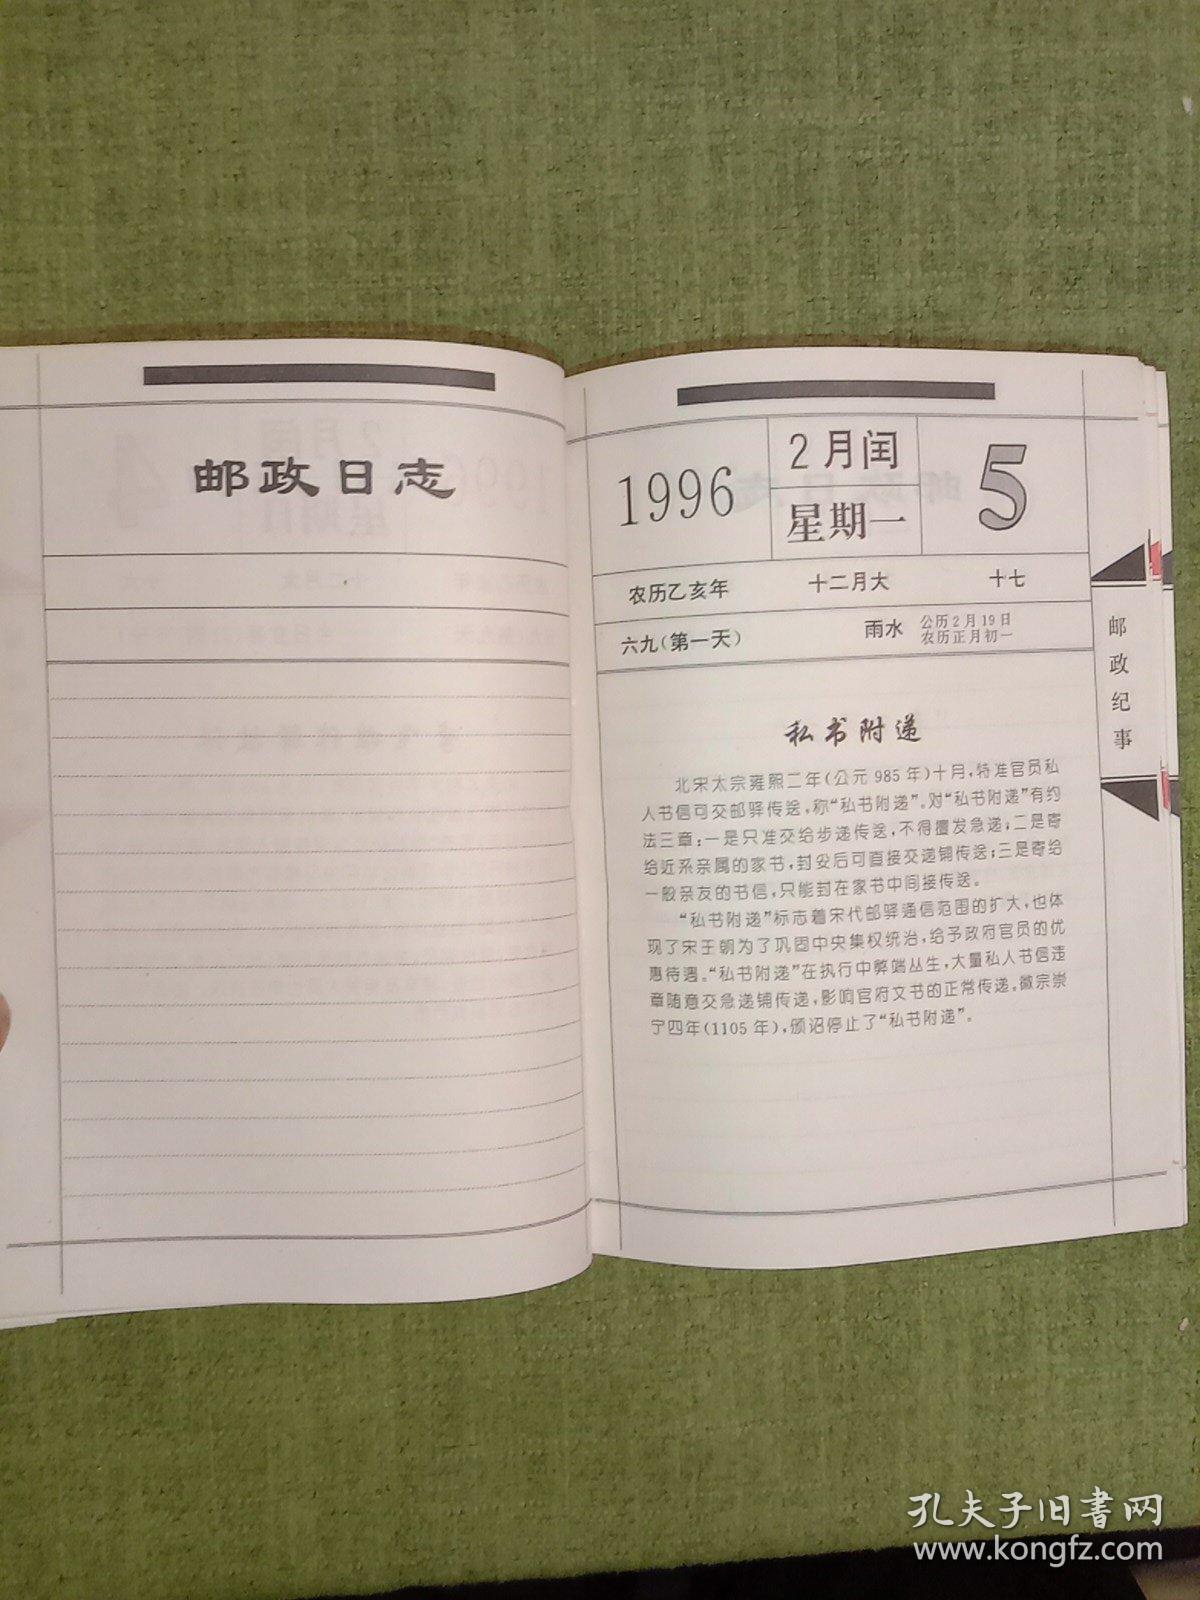 邮政日志
1996
2月闰
星期一
5
农历乙亥年 十二月大 十七
六九(第一天) 雨水 公历2月19日
农历正月初一
私书附递
北宋太宗雍熙二年(公元985年)十月,特准官员私
人书信可交邮驿传送,称“私书附递”。对“私书附递”有约
法三章:一是只准交给步递传送,不得擅发急递;二是寄
给近系亲属的家书,封妥后可直接交递铺传送;三是寄给
一般亲友的书信,只能封在家书中间接传送。
“私书附递”标志着宋代邮驿通信范围的扩大,也体
现了宋王朝为了巩固中央集权统治,给予政府官员的优
惠待遇。“私书附递”在执行中弊端丛生,大量私人书信违
章随意交急递铺传递,影响官府文书的正常传递。徽宗崇
宁四年(1105年),颁诏停止了“私书附递”。
邮政纪事
孔夫子旧書网
www.kongfz.com